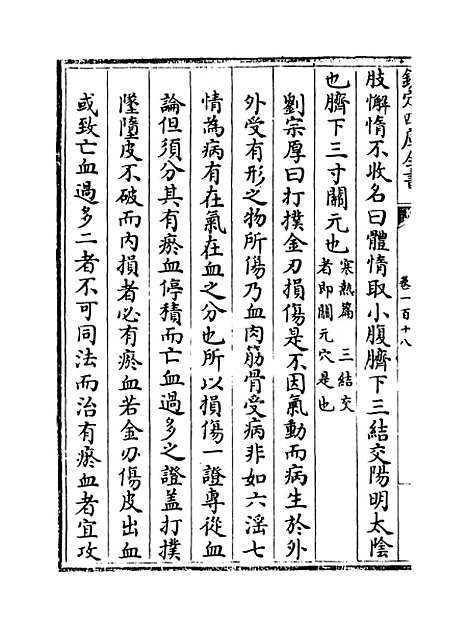 欽定四庫全書
卷一百十八
肢懈惰不收名曰體惰取小腹臍下三結交陽明太陰
也臍下三寸關元也寒熱篇 三結交
者即關元穴是也
劉宗厚曰打撲金刃損傷是不因氣動而病生於外
外受有形之物所傷乃血肉筋骨受病非如六滛七
情為病有在氣在血之分也所以損傷一證專從血
論但須分其有瘀血停積而亡血過多之證盖打撲
墜墮皮不破而内損者必有瘀血若金刃傷皮出血
或致亡血過多二者不可同法而治有瘀血者宜攻